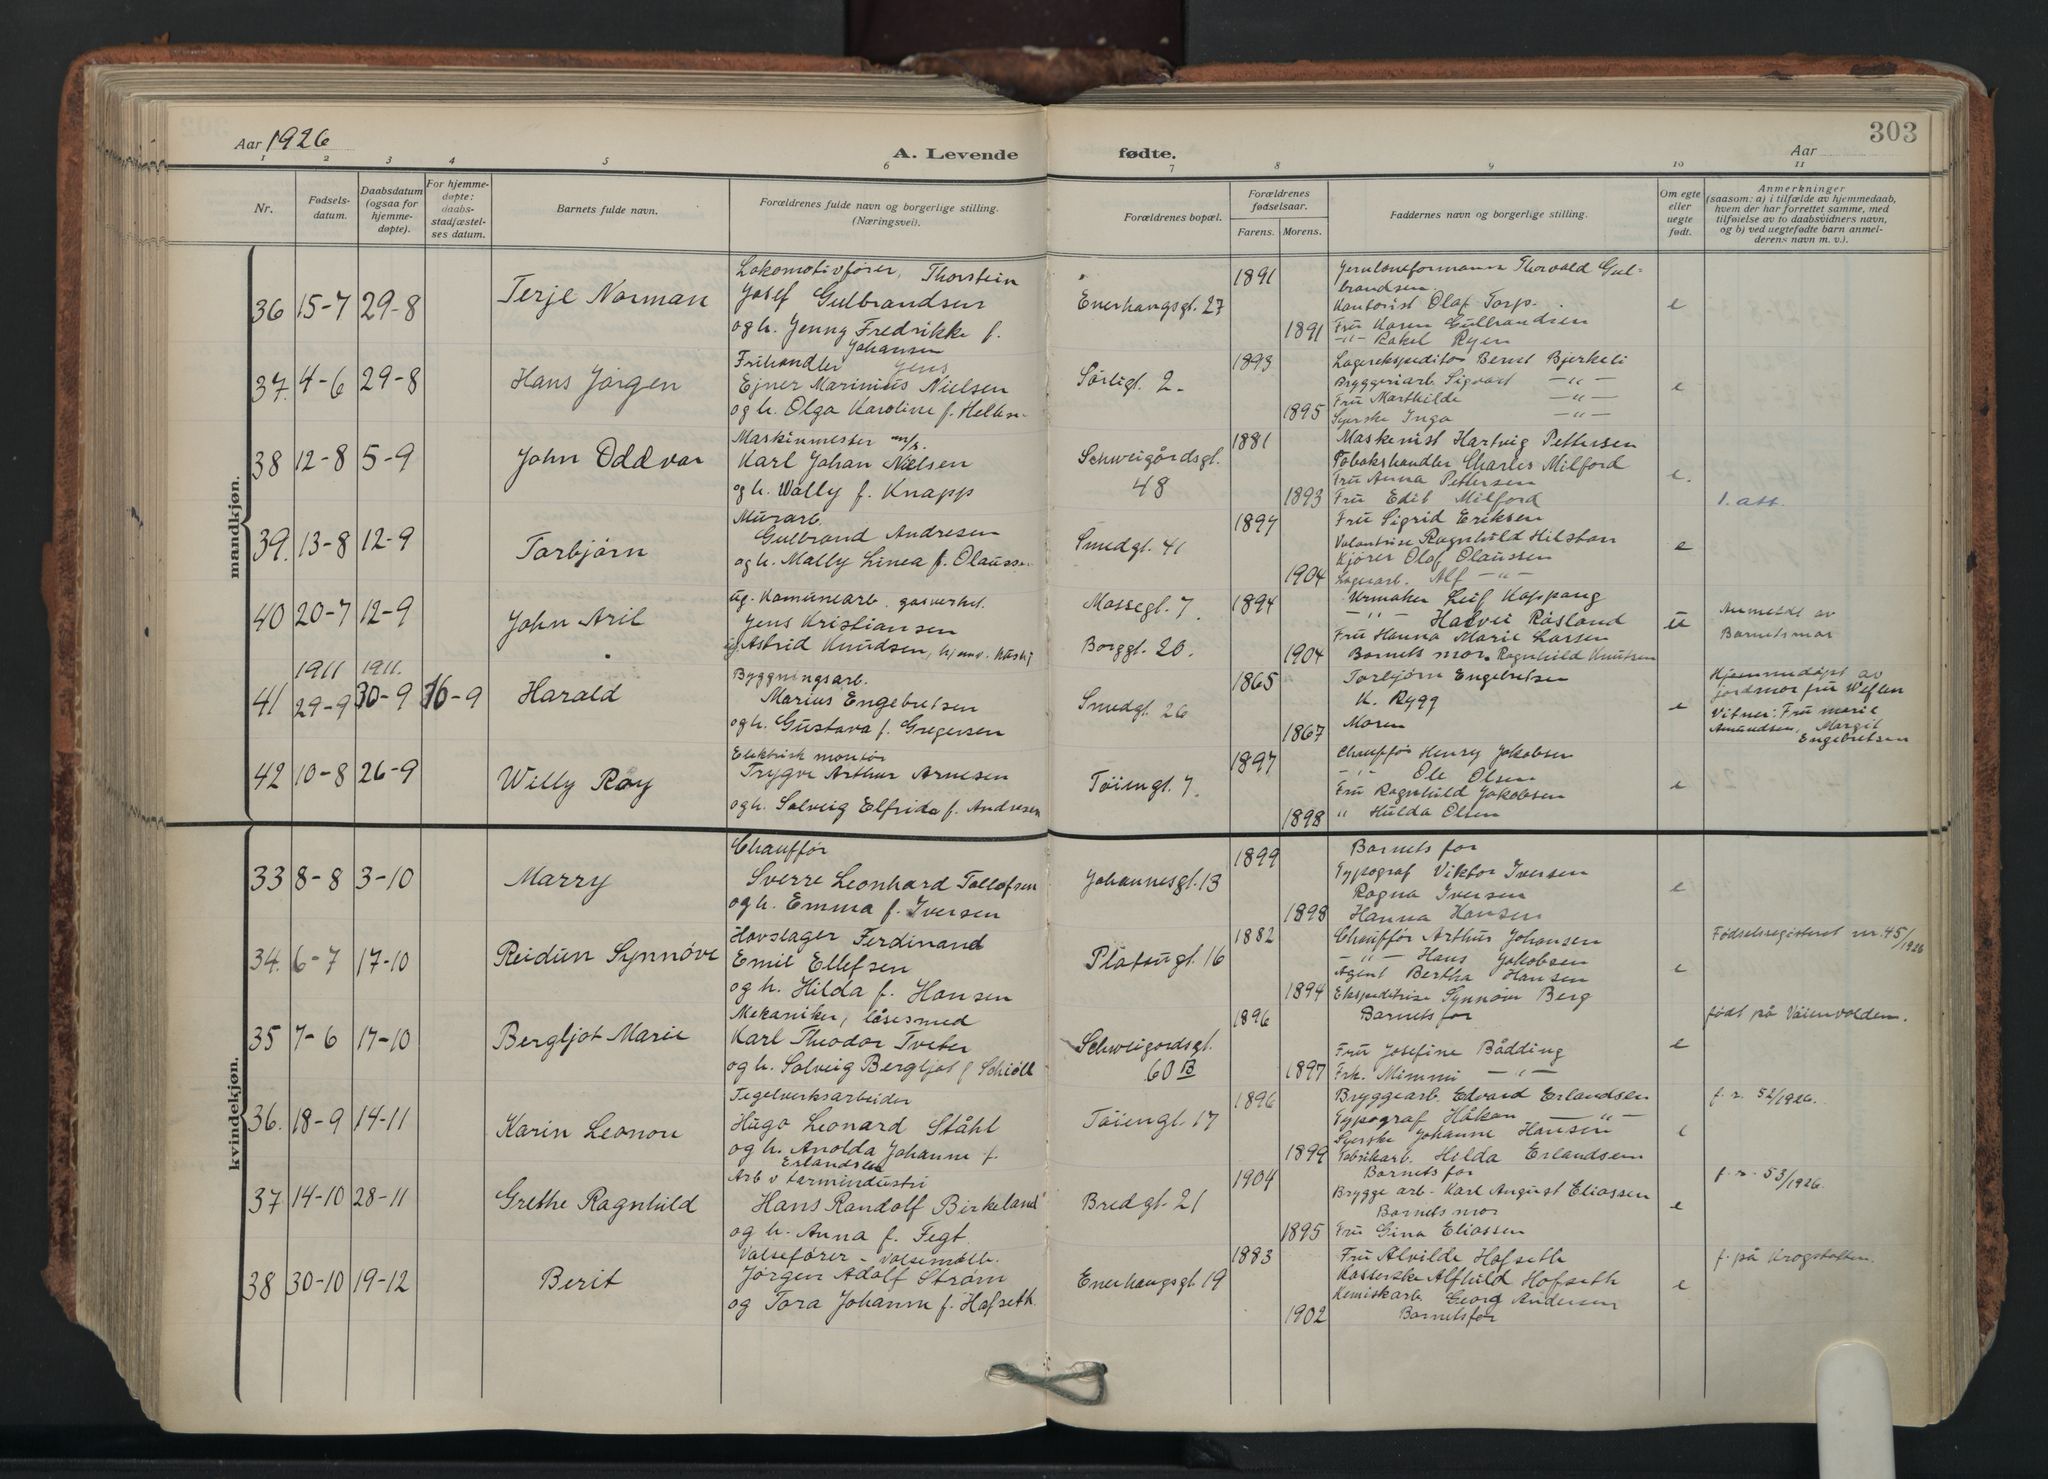 Aar 1926
A. Levende fødte.
Aar
303
1 2 3 4 5 6 7 8 9 10 11
Nr.
Fødsels-
datum.
Daabsdatum
(ogsaa for
hjemme-
døpte).
For hjemme-
døpte:
daabs-
stadfæstel-
ses datum.
Barnets fulde navn.
Forældrenes fulde navn og borgerlige stilling.
(Næringsvei).
Forældrenes bopæl.
Forældrenes
fødselsaar.
Farens. Morens.
Faddernes navn og borgerlige stilling.
Om egte
eller
uegte
født.
Anmerkninger
(saasom: a) i tilfælde av hjemmedaab,
hvem der har forrettet samme, med
tilføielse av to daabsvidners navn,
og b) ved uegtefødte barn anmel-
derens navn m. v.).
mandkjøn.
36 15-7 29-8 Terje Norman
Lokomotivfører, Thorstein
Josef Gulbrandsen
og h. Jenny Fredrikke f.
Johansen
Enerhaugsgt. 27
1891
1891
Jernbaneformann Thorvald Gul-
brandsen.
Kontorist Olaf Torp.
Fru Karen Gulbrandsen
-"- Rakel Ryen
e
37. 4-6 29-8 Hans Jørgen
Fruhandler Jens
Ejner Marinius Nielsen
og h. Olga Karoline f.
Sørligt. 2.
1893
1895
Lagerekspeditør Bernt Bjerkeli
Bryggeriarb. Sigvart -"-
Fru Marthilde -"-
Syerske Inga -"-
e
38 12-8 5-9 John Oddvar
Maskinmester m/s.
Karl Johan Nielsen
og h. Wally f. Knapp
Schweigårdsgt.
48
1881
1893
Maskinist Hartvig Pettersen
Tobakshandler Charles Milford
Fru Anna Pettersen
Fru Edit Milford
e.
1. att.
39. 13-8 12-9 Torbjørn
Murarb.
Gulbrand Andresen
og h. Mally Linea f. Olausse
Smedgt. 41
1897
1904
Fru Sigrid Eriksen
Ragnhild
Kjører Olaf Olaussen
Lagerarb. Alf -"-
e
40 20-7 12-9 John Aril
ug. Komunearb. gasverket.
Jens Kristiansen
Astrid Knudsen,
Mossegt. 7.
Borggt. 20.
1894
1904
Urmaker Leif Koppang
-"- Råsland
Fru Hanna Marie Larsen
Barnets mor. Ragnhild Knutsen
u
Anmeldt av
Barnets mor
1911 1911.
41 29-9 30-9 16-9 Harald
Byggningsarb.
Marius Engebretsen
og h. Gustava f. Gregersen
Smedgt. 26
1865
1867
Torbjørn Engebretsen
K. Rygg
Moren
e
Hjemmedøpt av
jordmor fru Weflen
Vitner: Fru Marie
Amundsen, Margit
Engebretsen
42 10-8 26-9 Willy Roy
Elektrisk montør
Trygve Arthur Arnesen
og h. Solveig Elfrida f. Andresen
Tøiengt. 7.
1897
1898
Chauffør Henry Jakobsen
-"- Ole Olsen
Fru Ragnhild Jakobsen
" Hulda Olsen
e
kvindekjøn.
33 8-8 3-10 Marry
Chauffør
Sverre Leonhard Tollofsen
og h. Emma f. Iversen
Johannesgt. 13
1899
1898
Barnets far
Typograf Viktor Iversen
Ragna Iversen
Hanna Hansen
e
34. 6-7 17-10 Reidun Synnøve
Hovslager Ferdinand
Emil Ellefsen
og h. Hilda f. Hansen
Platougt. 16
1882
1894
Chauffør Arthur Johansen
-"- Hans Jakobsen
Agent Bertha Hansen
Ekspeditrise Synnøve Berg
e
Fødselsregisteret nr. 45/1926
35 7-6 17-10 Bergljot Marie
Mekaniker, låsesmed
Karl Theodor Tveter
og h. Solveig Bergljot f Schiøll
Schweigordsgt.
60 B
1896
1897
Barnets far
Fru Josefine Bådding
Frk. Mimmi -"-
e
født på Våienvolden.
36. 18-9 14-11 Karin Leonou
Tegelverksarbeider
Hugo Leonard Ståhl
og h. Anolda Johanne f.
Erlandsen
Tøiengt. 17
1896
1899
Bryggearb. Edvard Erlandsen
Typograf Håkon -"-
Syerske Johanne Hansen
Fabrikarb. Hilda Erlandsen
e
f. r. 52/1926.
37 14-10 28-11 Grethe Ragnhild
Arb v tarmindustri
Hans Randolf Birkeland
og h. Anna f. Fegt.
Bredgt. 21
1904
1895
Barnets far
Brygge arb. Karl August Eliassen
Barnets mor
Fru Gina Eliassen
e
f. r. 53/1926.
38 30-10 19-12 Berit
Valsefører - Valsemølle.
Jørgen Adolf Strøm
og Tora Johanne f. Hofseth.
Enerhaugsgt. 19
1883
1902
Fru Alvilde Hofseth
Kasserske Alfhild Hofseth
Kemiskarb. Georg Andersen
Barnets far
e
f. på Krogstøtten.